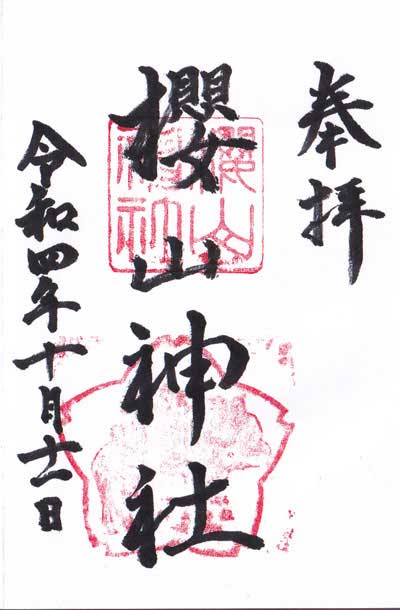 奉拝
櫻山神社
令和四年十月十一日
櫻山
神社